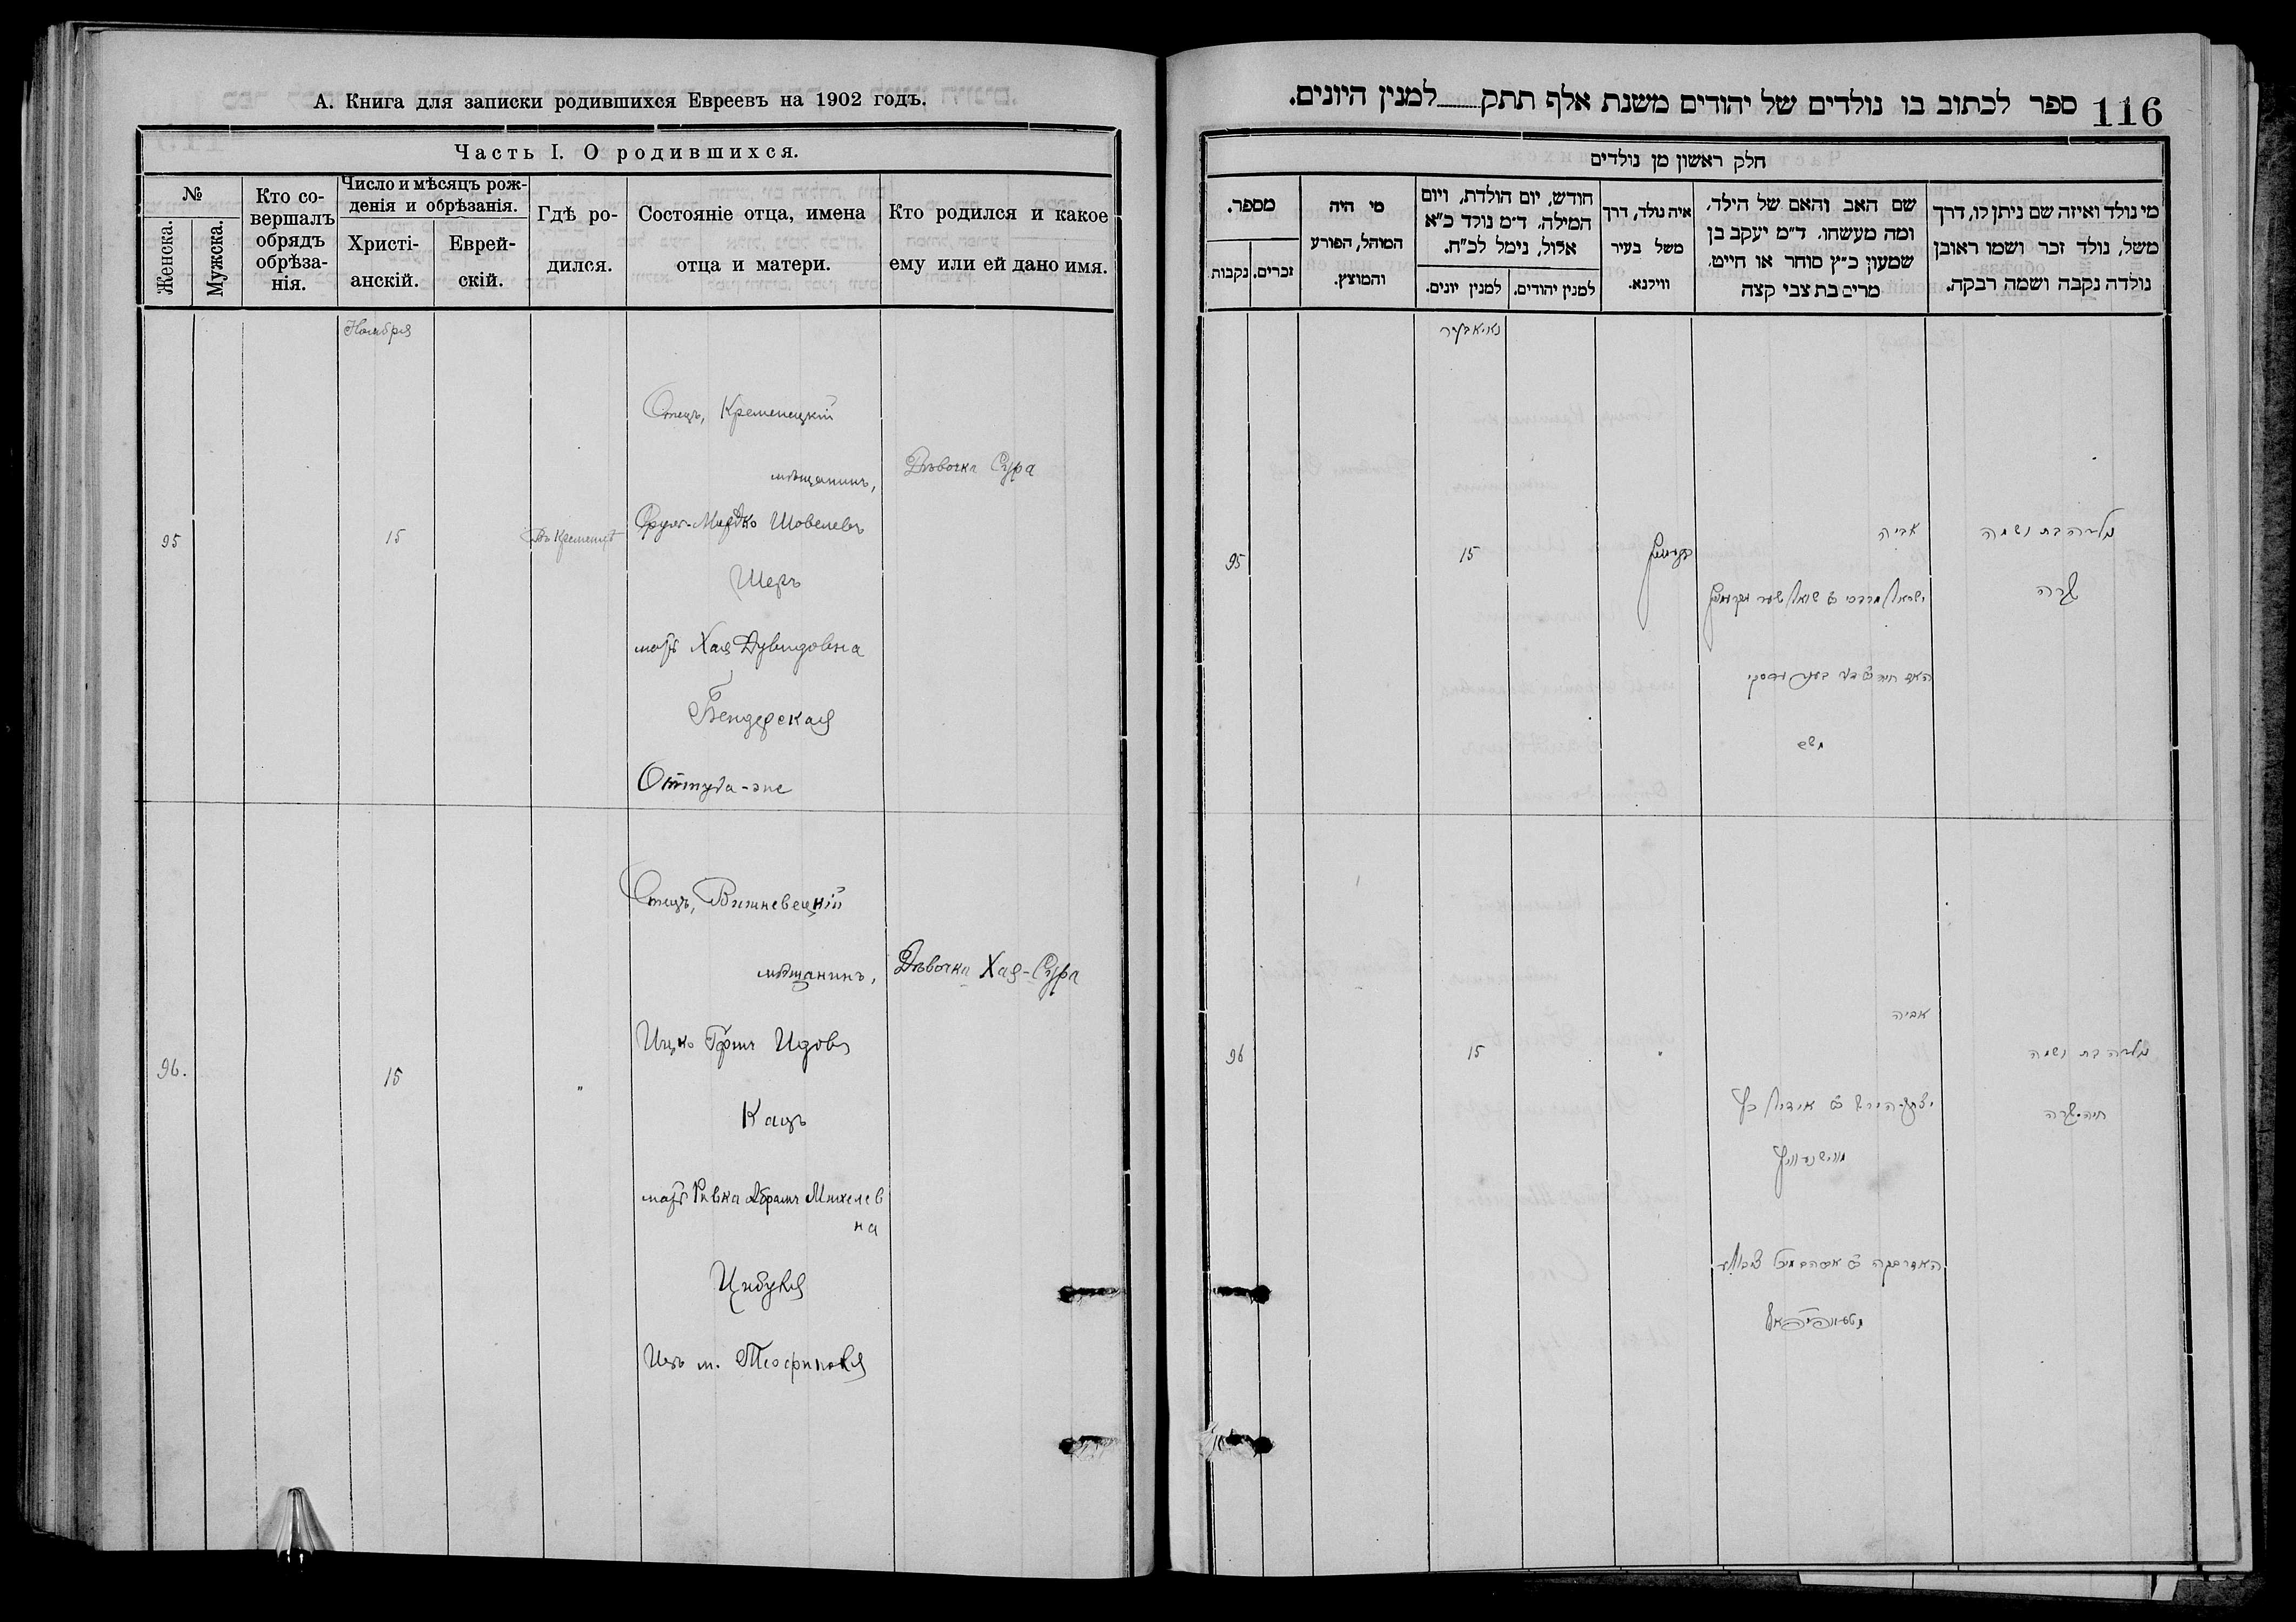 А. Книга для записки родившихся Евреевъ на 1902 годъ.
Часть I. О родившихся.
№
Женска.
Мужска.
Кто со-
вершалъ
обрядъ
обрѣза-
нія.
Число и мѣсяцъ рож-
денія и обрѣзанія.
Христі-
анскій.
Еврей-
скій.
Гдѣ ро-
дился.
Состояніе отца, имена
отца и матери.
Кто родился и какое
ему или ей дано имя.
Ноября
95
15
Въ Кременцѣ
Отецъ, Кременецкій
мѣщанинъ,
Шовелевъ
Шеръ
мать Хая Дувидовна
Бендерская
Оттуда-же
Дѣвочка Сура
96.
15
"
Отецъ, Вишневецкій
мѣщанинъ,
Ицко Гершъ Идовъ
Кацъ
мать Ривка Абрамъ Михелев
на
Цибуля
Изъ м. Теофиполя
Дѣвочка Хая-Сура
116
ספר לכתוב בו נולדים של יהודים משנת אלף תתק למנין היונים.
חלק ראשון מן נולדים
מי נולד ואיזה שם ניתן לו, דרך
משל, נולד זכר ושמו ראובן
נולדה נקבה ושמה רבקה.
שם האב והאם של הילד,
ומה מעשהו. ד״מ יעקב בן
שמעון כ״ץ סוחר או חייט.
מרים בת צבי קצה
איה נולד, דרך
משל בעיר
ווילנא.
חודש, יום הולדת, ויום
המילה. ד״מ נולד כ״א
אלול, נימל לכ״ח.
למנין יהודים.
למנין יונים.
מי היה
המוהל, הפורע
והמוצץ.
מספר.
זכרים.
נקבות
נאיאבער
95
15
אביה
נולדה בת ושמה
שרה
96
15
"
אביה
נולדה בת ושמה
חיה-שרה